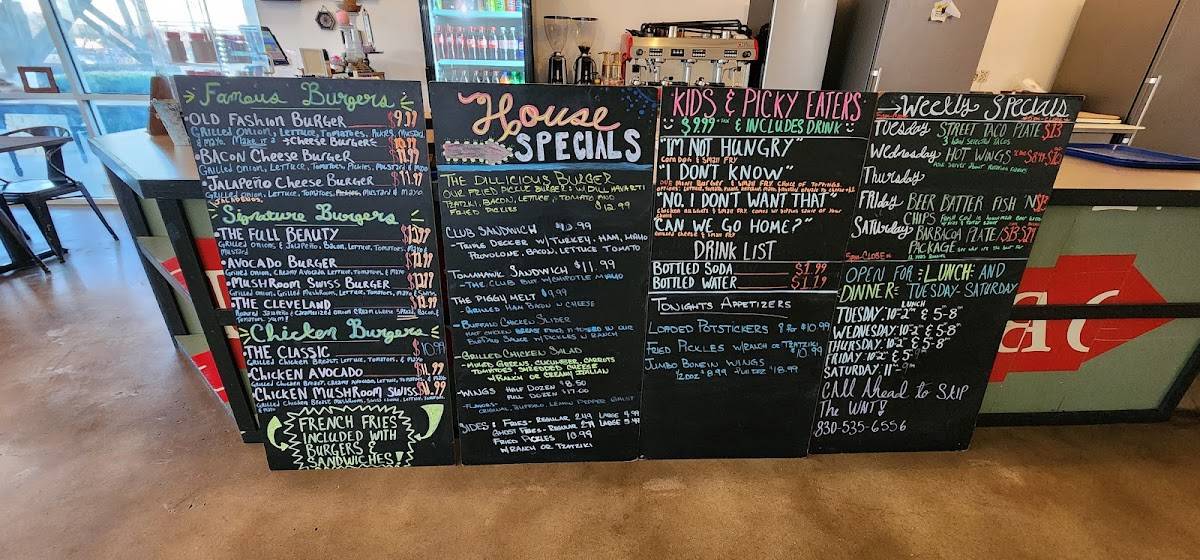 Famous Burgers
• OLD FASHION BURGER $9.99
GRILLED ONION, LETTUCE, TOMATOES, PICKLES, MUSTARD
& MAYO. MAKE IT A → CHEESE BURGER
• BACON CHEESE BURGER $11.99
GRILLED ONION, LETTUCE, TOMATOES, PICKLES, MUSTARD &
MAYO
• JALAPEÑO CHEESE BURGER $11.99
GRILLED ONION, LETTUCE, TOMATOES, PICKLES, MUSTARD & MAYO
Signature Burgers
• THE FULL BEAUTY
Grilled onions & Jalapeño, Bacon, Lettuce, Tomatoes, & Mayo
Mustard
• AVOCADO BURGER
Grilled onion, Creamy Avocado, Lettuce, Tomatoes, & Mayo
• MUSHROOM SWISS BURGER
Grilled onion, Grilled Mushrooms, Lettuce, Tomatoes, & Mayo
• THE CLEVELAND
Roasted Jalapeño & Caramelized onion cream cheese spread, Bacon, &
Tomatoes. Yum!
Chicken Burgers
• THE CLASSIC $10.99
Grilled Chicken Breast, Lettuce, Tomatoes, & Mayo
• CHICKEN AVOCADO $11.99
Grilled Chicken Breast, Creamy Avocado, Lettuce, Tomatoes, & Mayo
• CHICKEN MUSHROOM SWISS $11.99
& Mayo
FRENCH FRIES
INCLUDED WITH
BURGERS &
SANDWICHES!
House
SPECIALS
THE DILLICIOUS BURGER
OUR FRIED PICKLE BURGER: W/ DILL HAVARTI
TZATZIKI, BACON, LETTUCE, TOMATO AND
FRIED PICKLES $12.99
CLUB SANDWICH $10.99
- TRIPLE DECKER W/ TURKEY, HAM, MAYO
PROVOLONE, BACON, LETTUCE TOMATO
TOMAHAWK SANDWICH $11.99
- THE CLUB BUT W/ CHIPOTLE MAYO
THE PIGGY MELT $9.99
- GRILLED HAM BACON W CHEESE
- BUFFALO CHICKEN SLIDER
HALF CHICKEN BREAST FRIED, & TOSSED IN OUR
BUFFALO SAUCE W/ PICKLES W RANCH
- GRILLED CHICKEN SALAD
- MIXED GREENS, CUCUMBER, CARROTS
TOMATOES, SHREDDED CHEESE
W RANCH OR CREAMY ITALIAN
- WINGS HALF DOZEN $8.50
FULL DOZEN $17.00
- FLAVORS:
ORIGINAL, BUFFALO, LEMON PEPPER
SIDES: FRIES - REGULAR 2.49 LARGE 4.99
GHOST FRIES - REGULAR 2.79 LARGE 5.49
FRIED PICKLES 10.99
W RANCH OR TZATZIKI
KIDS & PICKY EATERS
$9.99 & INCLUDES DRINK
"I'M NOT HUNGRY"
CORN DOG & SMALL FRY
"I DON'T KNOW"
"NO, I DON'T WANT THAT"
"CAN WE GO HOME?"
GRILLED CHEESE & SMALL FRY
DRINK LIST
BOTTLED SODA $1.99
BOTTLED WATER $1.79
TONIGHTS APPETIZERS
LOADED POTSTICKERS 8 FOR $10.99
FRIED PICKLES W/ RANCH OR TZATZIKI
$10.99
JUMBO BONEIN WINGS
→ WEEKLY SPECIALS
TUESDAY STREET TACO PLATE $13
WEDNESDAY HOT WINGS
THURSDAY
FRIDAY BEER BATTER FISH 'N
CHIPS
SATURDAY BARBACOA PLATE/
PACKAGE
OPEN FOR LUNCH AND
DINNER TUESDAY-SATURDAY
LUNCH
TUESDAY: 10-2 & 5-8
WEDNESDAY: 10-2 & 5-8
THURSDAY: 10-2 & 5-8
FRIDAY: 10-2 & 5-
SATURDAY: 11
CALL AHEAD TO SKIP
THE WAIT!
830-535-6556